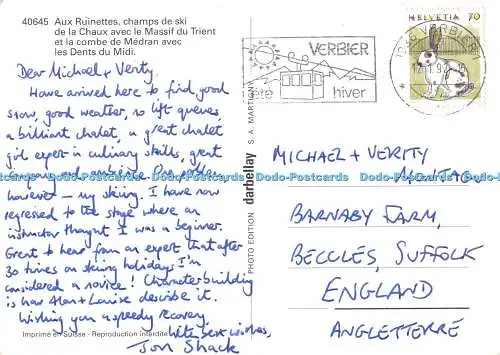 40645 Aux Ruinettes, champs de ski
de la Chaux avec le Massif du Trient
et la combe de Médran avec
les Dents du Midi.
Dear Michael + Verity,
Have arrived here to find good
snow, good weather, no lift queues,
a brilliant chalet, a great chalet
girl expert in culinary skills, great
company and
however — my skiing. I have now
regressed to the stage where an
instructor thought I was a beginner.
Great to hear from an expert that after
30 times on skiing holidays I'm
considered a novice! Character building
is how Alan + Louise describe it.
Wishing you a speedy recovery
With best wishes,
Jon Shack
Imprimé en Suisse - Reproduction interdite
PHOTO EDITION darbellay S. A. MARTIGNY
VERBIER
été hiver
1936 VERBIER
HELVETIA 70
MICHAEL + VERITY
MONTAGU
BARNABY FARM,
BECCLES, SUFFOLK
ENGLAND
ANGLETERRE
Dodo-Postcards Dodo-Postcards Dodo-Postcards Dodo-Postcards Dodo-Postcards